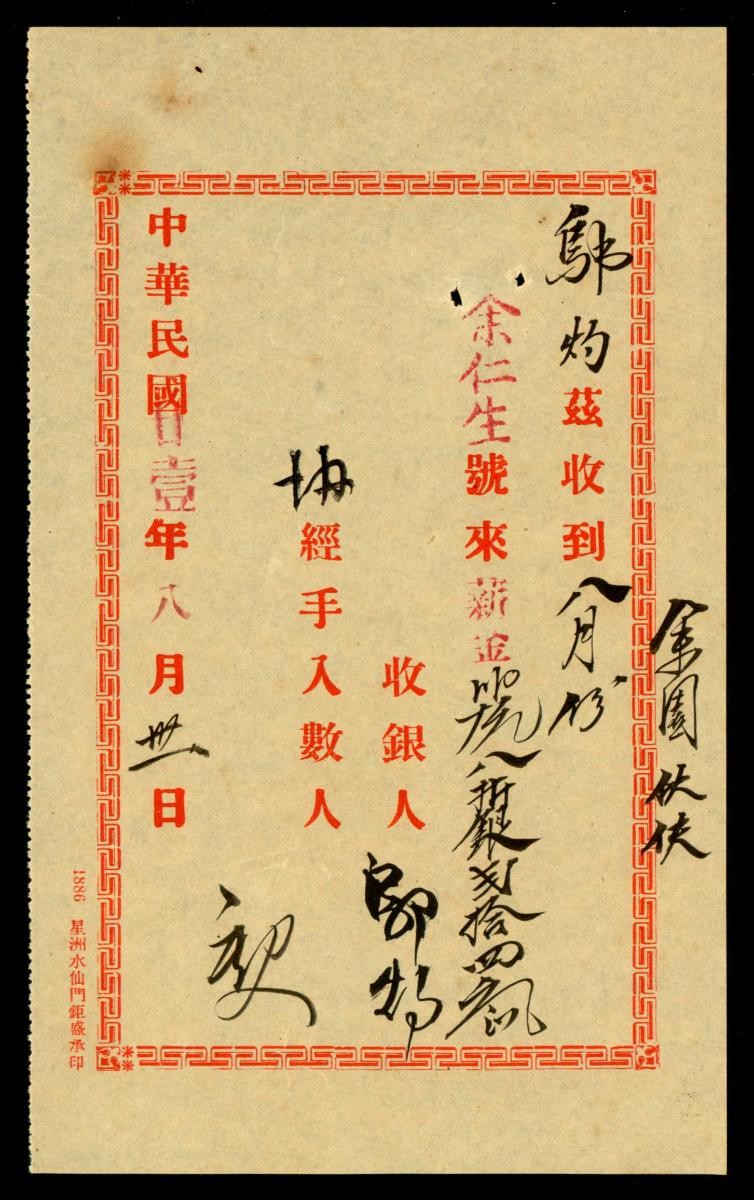 余園伙伕
灼茲收到八月份
余仁生號來薪金八折銀弍拾四
收銀人
經手入數人
中華民國廿壹年八月卅一日
1886 星洲水仙門鉅盛承印